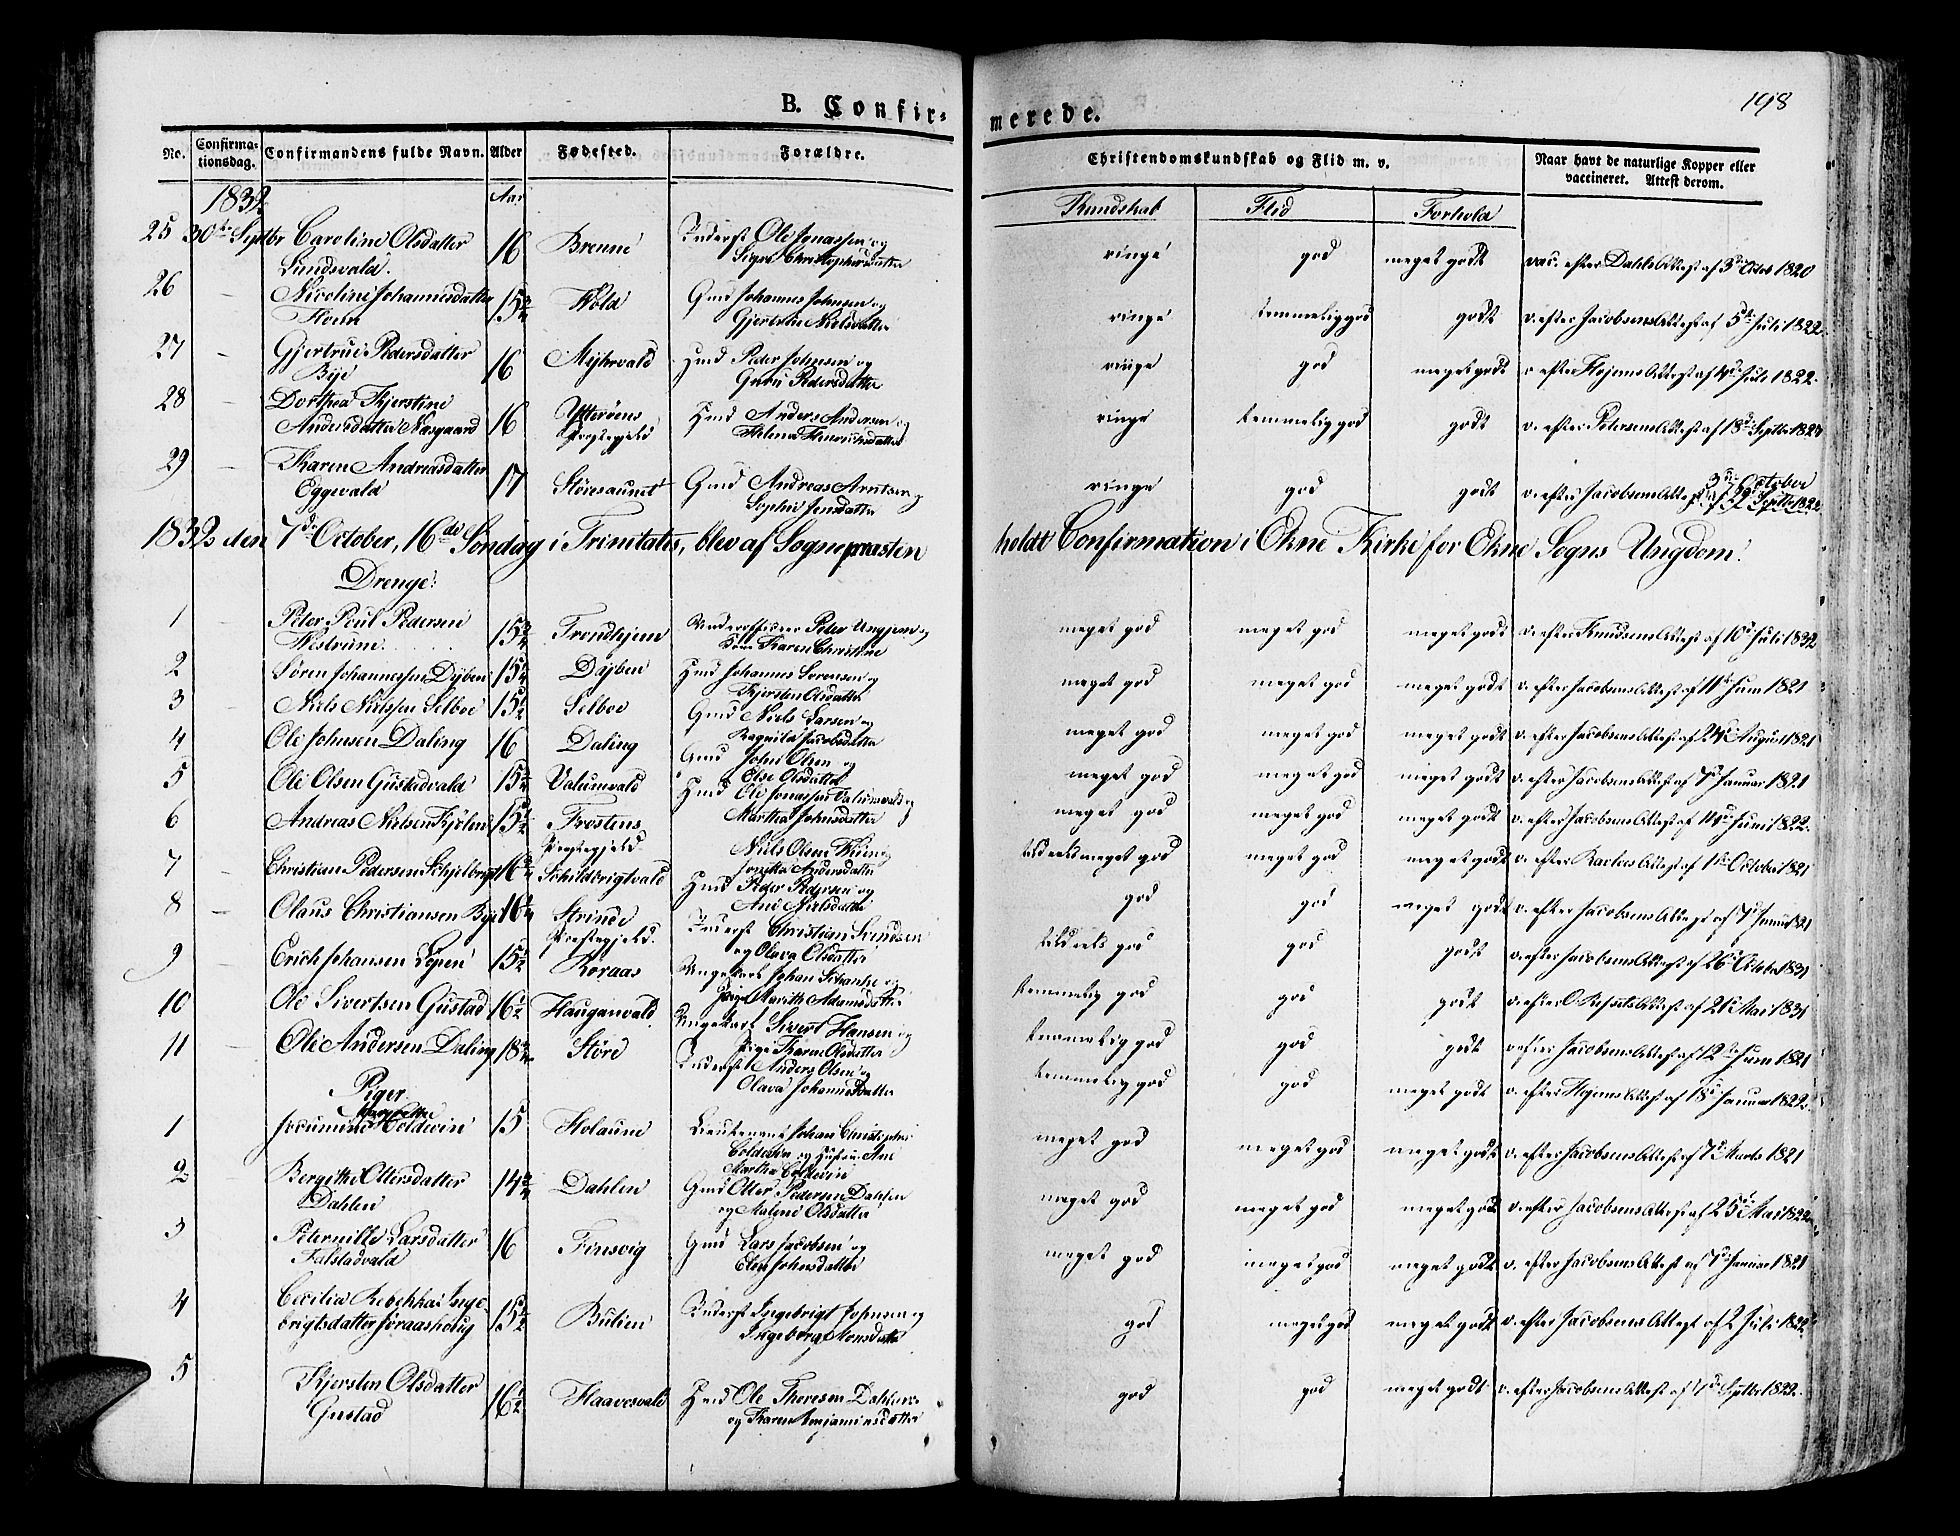 198
B. Confir-
merede.
No. Confirma-tionsdag. Confirmandens fulde Navn. Alder Fødested. Forældre. Christendomskundskab og Flid m. v. Naar havt de naturlige Kopper eller vaccineret. Attest derom.
1832 Aar Kundskab Flid Forhold
25 30te Septbr Caroline Olsdatter 16 Brenne Inderst Ole Jonassen og ringe god meget godt vac. efter Dahls Attest af 3die Octob 1820
Sundsvald. Signe Christophersdatter
26 – Nicoline Johannesdatter 15 3/4 Hold Gmd Johannes Johnsen og ringe temmelig god godt v. efter Jacobsens Attest af 5te Juli 1822.
Floun Gjertrue Nielsdatter
27 – Gjertrue Pedersdatter 16 Myhrvald Hmd Peder Johnsen og ringe god meget godt v. efter Hojems Attest af 4de Juli 1822.
Bye Guru Pedersdatter
28 – Dorthea Kjerstine 16 Ytterøens Hmd Anders Andersen og ringe temmelig god godt v. efter Petersens Attest af 18de Septbr
Andersdatter Næsgaard Præstegjeld Helena Henrichsdatter
29 – Karen Andreasdatter 17 Støresaunet Gmd Andreas Arntsen og ringe god godt v. efter Jacobsens Attest af 29 Septbr 1822
Eggevald Sophie Jensdatter 3die October
1832 den 7de October, 16de Søndag i Trinitatis, blev af Sognepræsten holdt Confirmation i Ekne Kirke for Ekne Sogns Ungdom.
Drenge:
1 Peter Poul Pedersen 15 3/4 Trondhjem Underofficeer Peter og meget god meget god meget godt v. efter Knudsens Attest af 10de Juli 1832
Westrum. Karen Christine
2 – Søren Johannessen Dyben 15 1/4 Dyben Hmd Johannes Sørensen og meget god meget god meget godt v. efter Jacobsens Attest af 11te Juni 1821
Kjersten Olsdatter
3 – Niels Nielssen Selboe 15 1/2 Selboe Gmd Niels Larsen og meget god meget god meget godt v. efter Jacobsens Attest af 24de August 1821
Ragnild Jacobsdatter
4 – Ole Johnsen Daling 16 Daling Gmd John Olsen og meget god meget god meget godt v. efter Jacobsens Attest af 7de Januar 1821
Else Olsdatter
5 – Ole Olsen Gustadvald 15 Valumvald Hmd Ole Jonassen Valumvald og meget god meget god meget godt v. efter Jacobsens Attest af Juni 1822.
Martha Johnsdatter
6 – Andreas Nielsen Kjølen 15 1/2 Frostens Niels Olsen og tildeels meget god meget god meget godt v. efter Attest af 1ste October 1821
Præstegjeld Andersdatter
7 – Christian Pedersen Schjelbrigt 16 3/4 Schildbrigtvald Hmd Peder Pedersen og god god meget godt v. efter Jacobsens Attest af 7de
Ane Nielsdatter
8 – Olaus Christiansen Bye 16 1/4 Strinde Inderst Christian Svendsen tildeels god god godt v. efter Jacobsens Attest af 26de October 1831
Præstegjeld. og Olava Olsdatter
9 – Erich Johansen Løpen 15 1/2 Røraas Ungekarl Johan Schanke og temmelig god god godt v. efter Attest af 21de Mai 1831
Pige Marith Adamsdatter
10 – Ole Sivertsen Gustad 16 1/2 Hauganvald Ungekarl Sivert Hansen og temmelig god god godt v. efter Jacobsens Attest af 12te Juni 1821
Pige Karen Olsdatter
11 – Ole Andersen Daling 18 3/4 Störe Inderst Anders Olsen og temmelig god god meget godt v. efter Hojems Attest af 18de Januar 1822.
Olava Johannesdatter
Piger
1 Margrethe 15 Holaune Lieutenant Johan Christopher meget god meget god meget godt v. efter Jacobsens Attest af 7de Marts 1821
Coldevin Coldevin og Hustrue Ane
Martha Coldevin
2 – Bergithe Ottersdatter 14 3/4 Dahlen Gmd Otter Pedersen Dahlen meget god meget god meget godt v. efter Jacobsens Attest af 25de Mai 1822
Dahlen og Malene Olsdatter
3 Peternille Larsdatter 16 Finsvig Gmd Lars Jacobsen og meget god meget god meget godt v. efter Jacobsens Attest af 7de Januar 1821
Falstadvald Elen Johnsdatter
4 Cecilia Rebekka Inge- 15 1/2 Bulien Inderst Ingebrigt Johnsen og god meget god meget godt v. efter Jacobsens Attest af 2 Juli 1822.
brigtsdatter Joraasholug Ingeborg Monsdatter
5 Kjersten Olsdatter 16 1/2 Haavesvald Hmd Ole Thoresen Dahlen god god meget godt v. efter Jacobsens Attest af Septbr 1822.
Gustad og Karen Benjaminsdatter